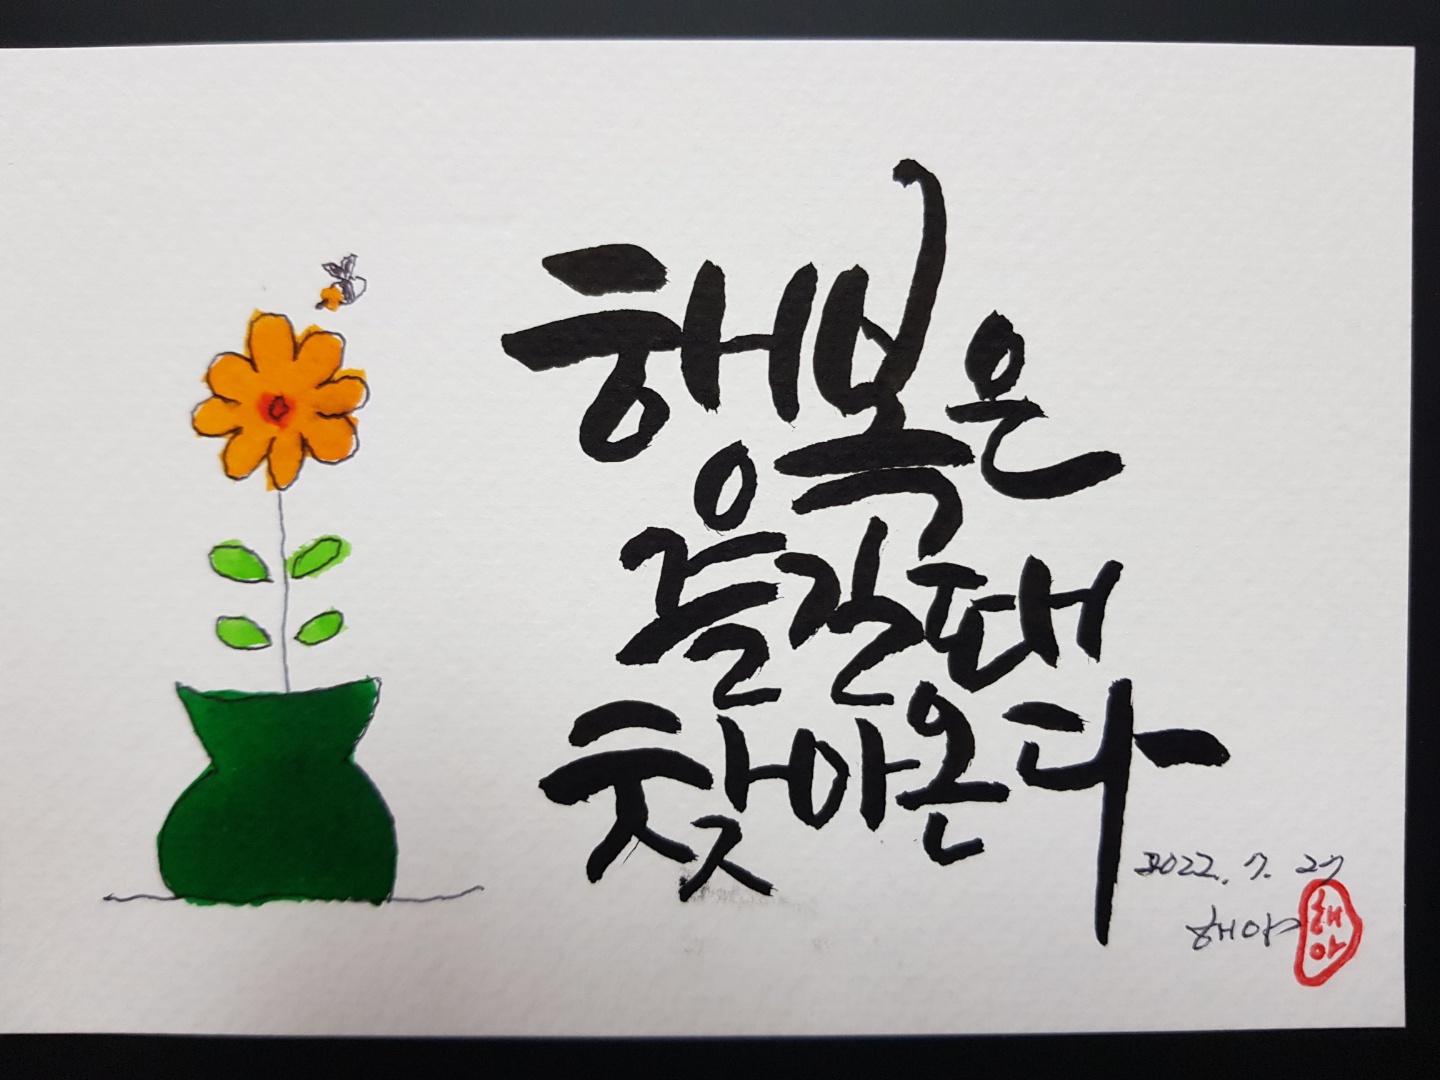 행복은
즐길때
찾아온다
2022. 7. 27
해아
해아